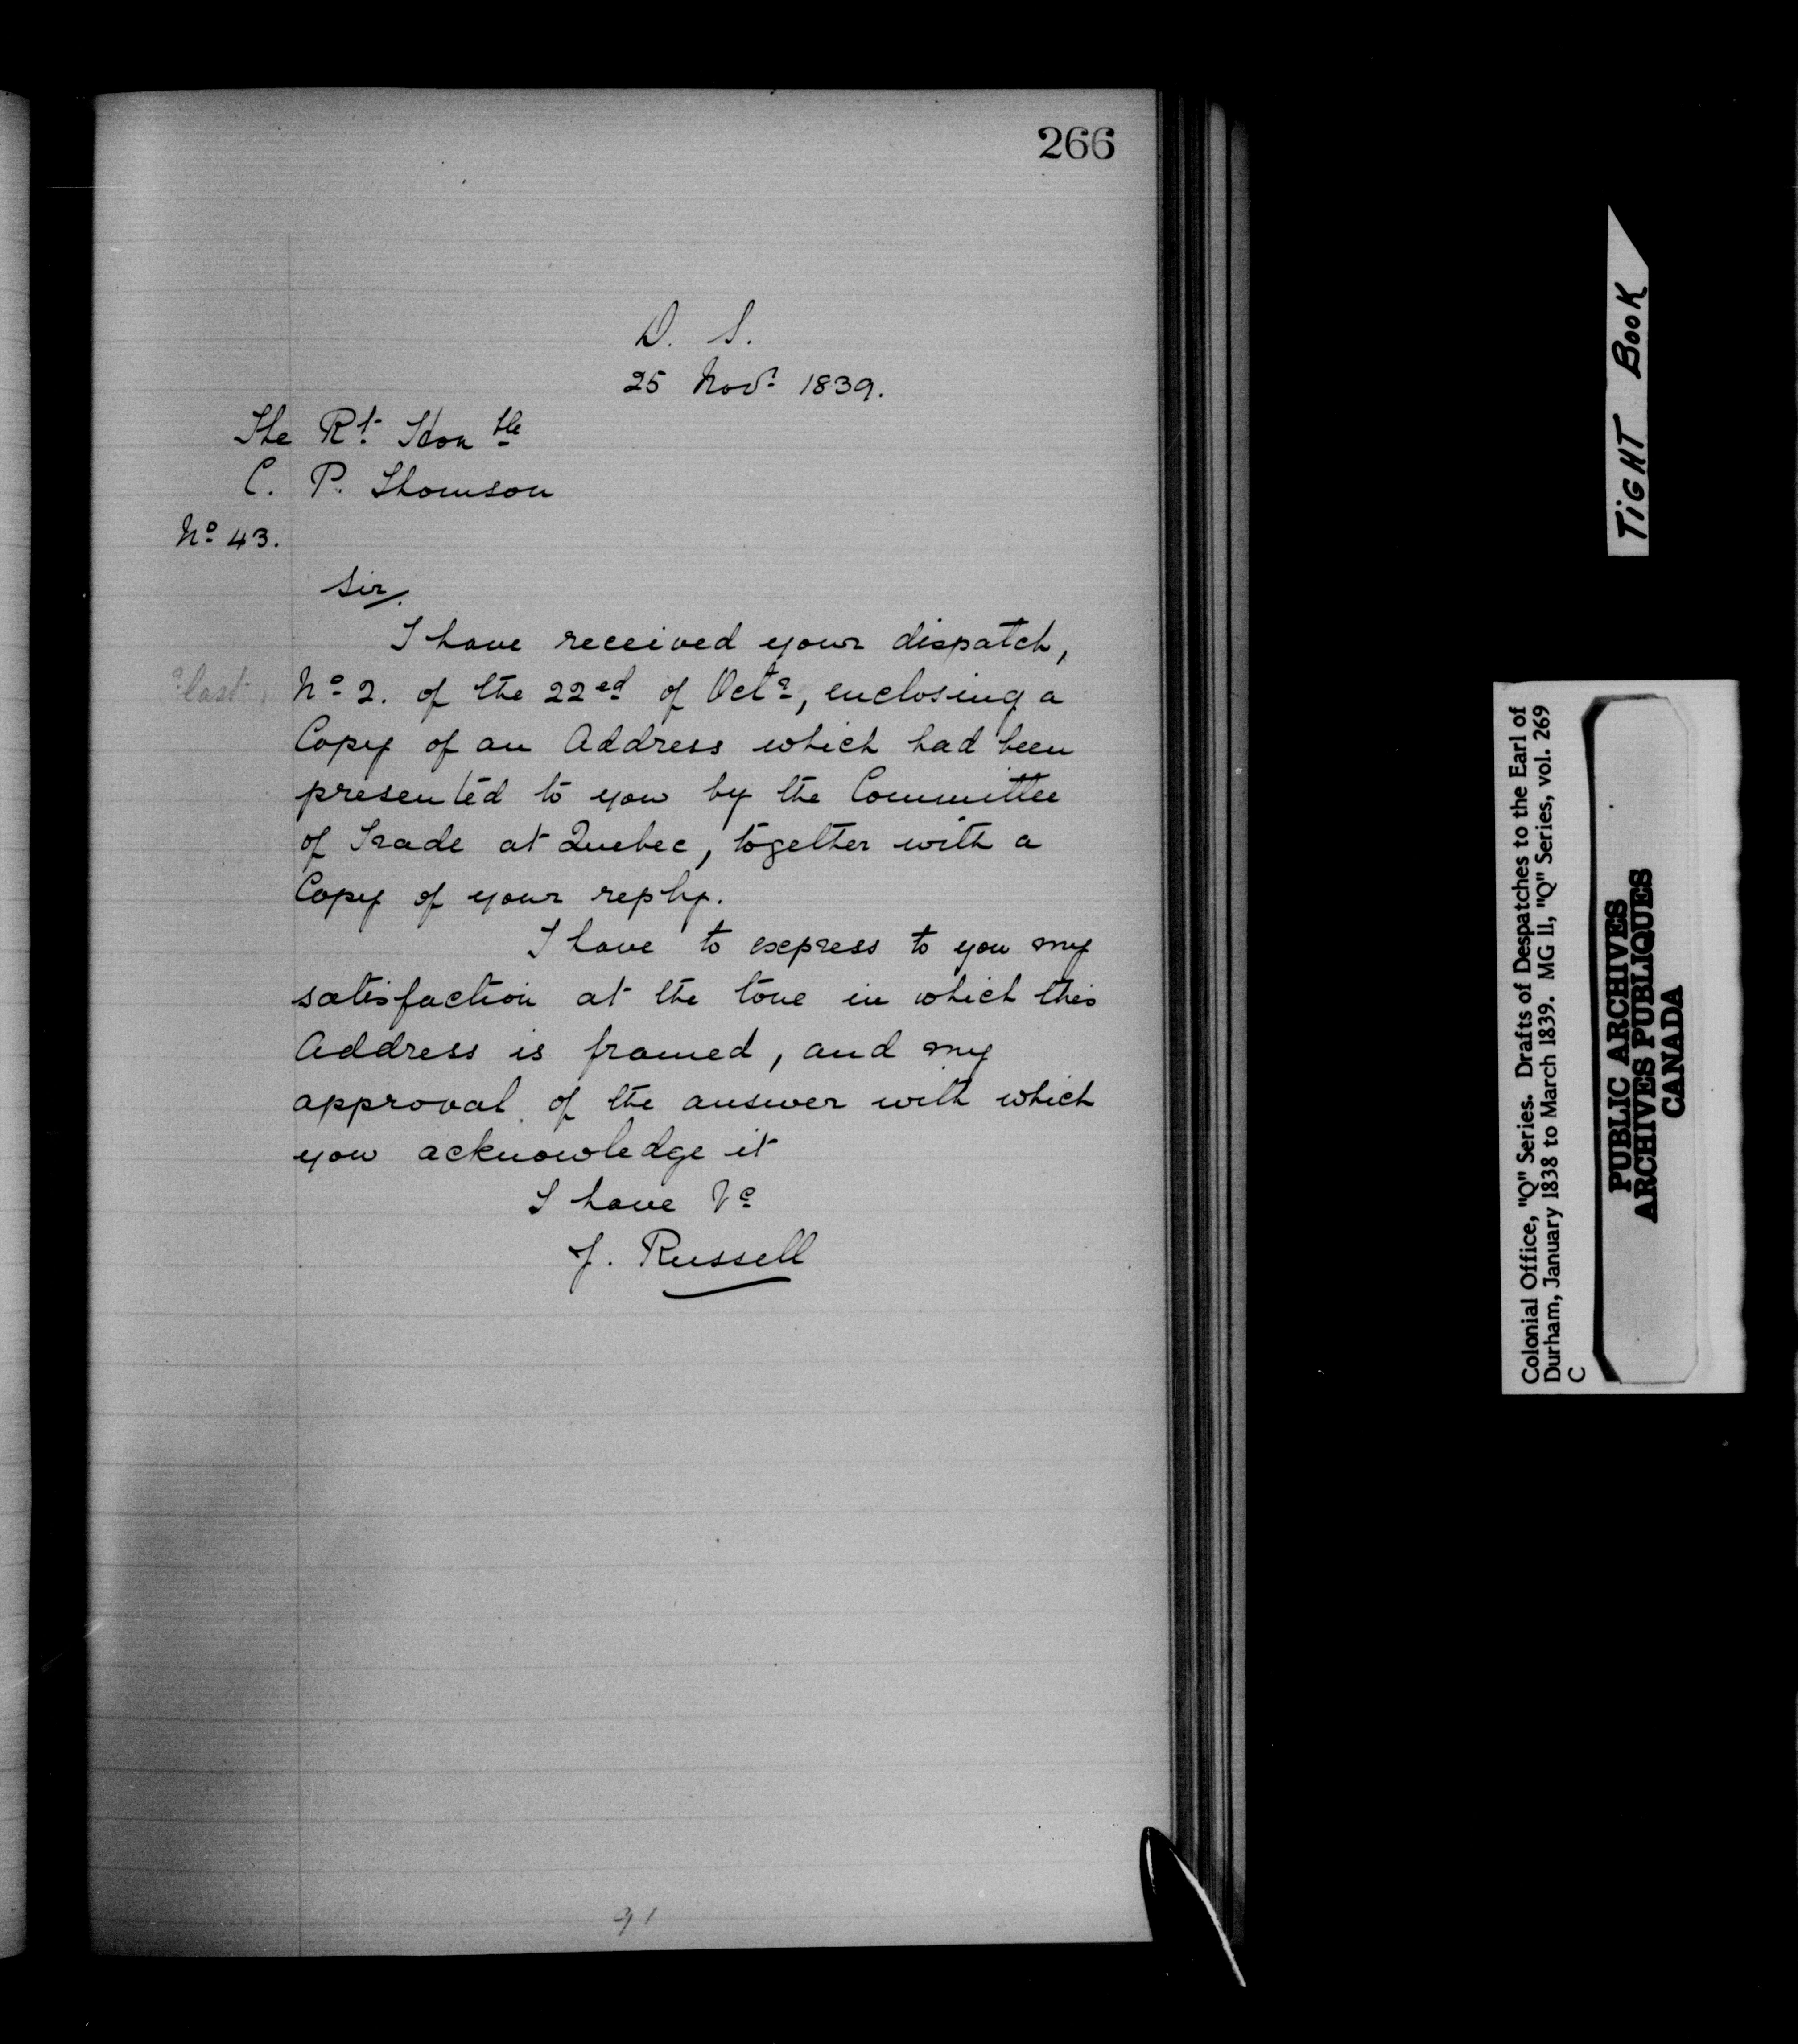 266
D. S.
25 Novr 1839.
The Rt Honble
C. P. Thomson
No 43.
Sir,
I have received your dispatch,
?last. No 2. of the 22ed of Octr, enclosing a
Copy of an Address which had been
presented to you by the Committee
of Trade at Quebec, together with a
Copy of your reply.
I have to express to you my
satisfaction at the tone in which this
Address is framed, and my
approval of the answer with which
you acknowledge it
I have &c
J. Russell
91
TiGHT BooK
Colonial Office, "Q" Series. Drafts of Despatches to the Earl of
Durham, January 1838 to March 1839. MG 11, "Q" Series, vol. 269
C
PUBLIC ARCHIVES
ARCHIVES PUBLIQUES
CANADA